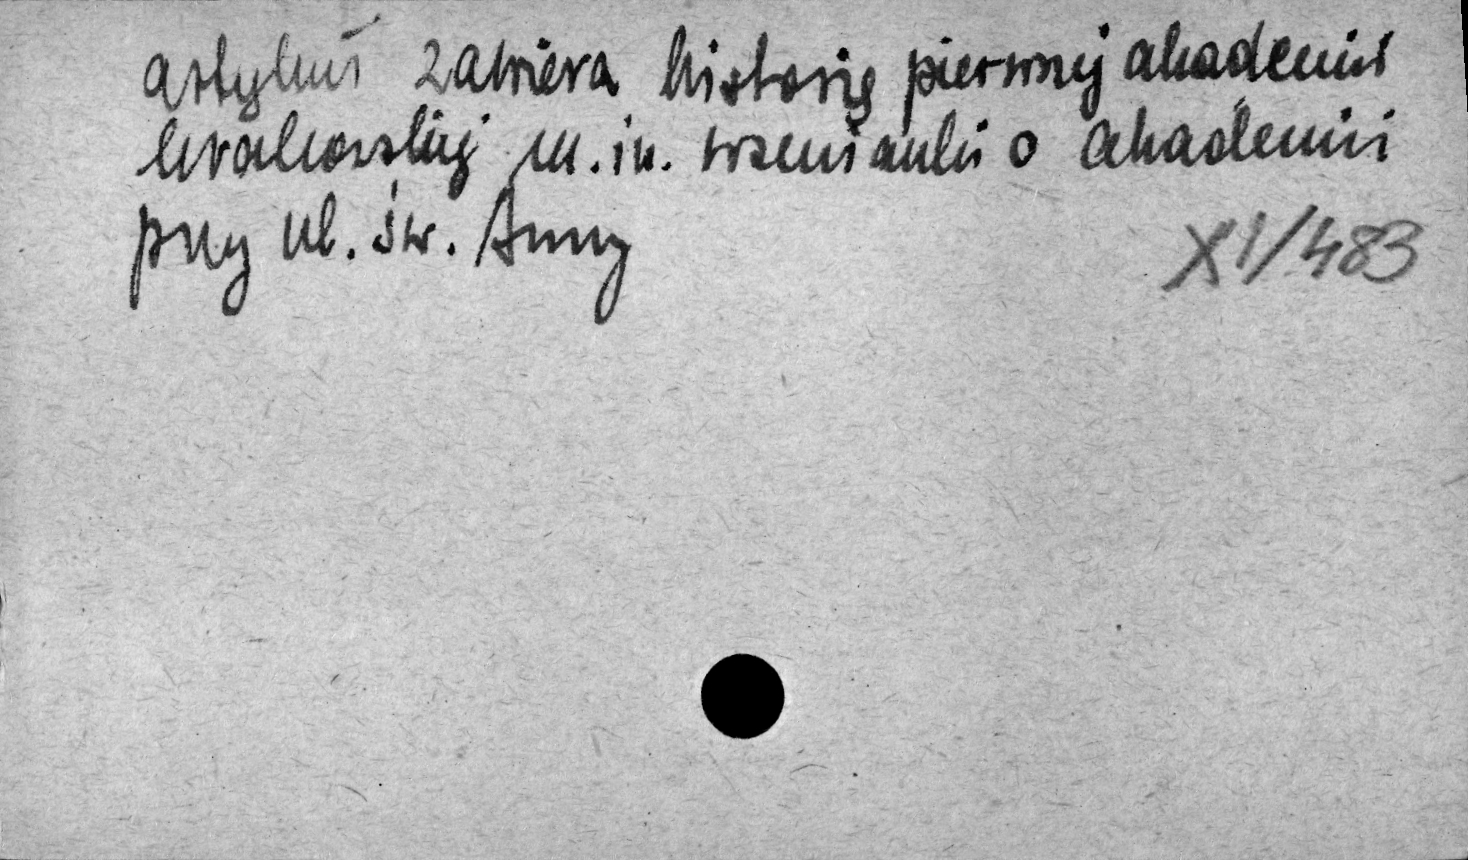 artykuł zawiera historię pierwszej akademii
krakowskiej m.in. wzmianki o akademii
przy ul. św. Anny
XI/483